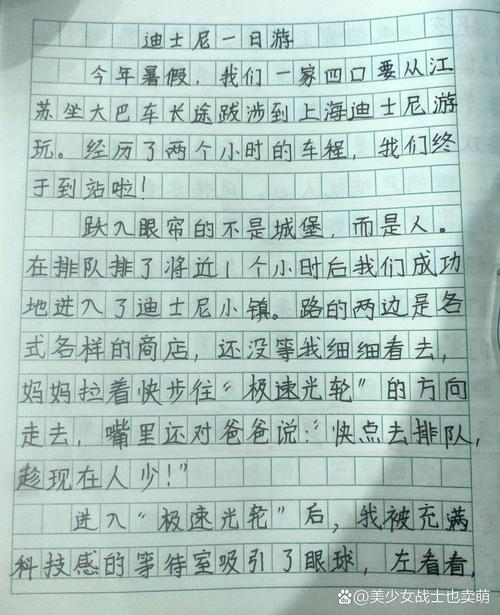 迪士尼一日游
今年暑假，我们一家四口要从江
苏坐大巴车长途跋涉到上海迪士尼游
玩。经历了两个小时的车程，我们终
于到站啦！
跃入眼帘的不是城堡，而是人。
在排队排了将近1个小时后我们成功
地进入了迪士尼小镇。路的两边是各
式各样的商店，还没等我细细看去，
妈妈拉着快步往“极速光轮”的方向
走去，嘴里还对爸爸说：“快点去排队，
趁现在人少！”
进入“极速光轮”后，我被充满
科技感的等待室吸引了眼球，左看看，
@美少女战士也卖萌